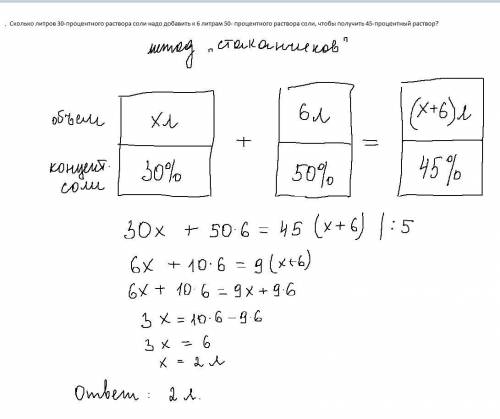 . Сколько литров 30-процентного раствора соли надо добавить к 6 литрам 50- процентного раствора соли, чтобы получить 45-процентный раствор?
метод "стаканчиков"
объем xл 6л (x+6)л
+ =
концент. соли 30% 50% 45%
30x + 50·6 = 45 (x+6) | :5
6x + 10·6 = 9(x+6)
6x + 10·6 = 9x + 9·6
3x = 10·6 - 9·6
3x = 6
x = 2 л
Ответ : 2 л.